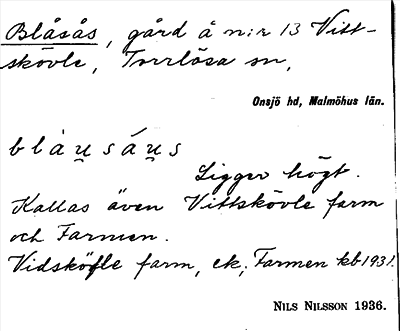 Blåsås, gård å n:r 13 Vitt-
skövle, Torrlösa sn,
Onsjö hd, Malmöhus län.
blåu̯sáu̯s
Ligger högt.
Kallas även Vittskövle farm
och Farmen.
Vidsköfle farm, ek; Farmen kb 1931.
NILS NILSSON 1936.